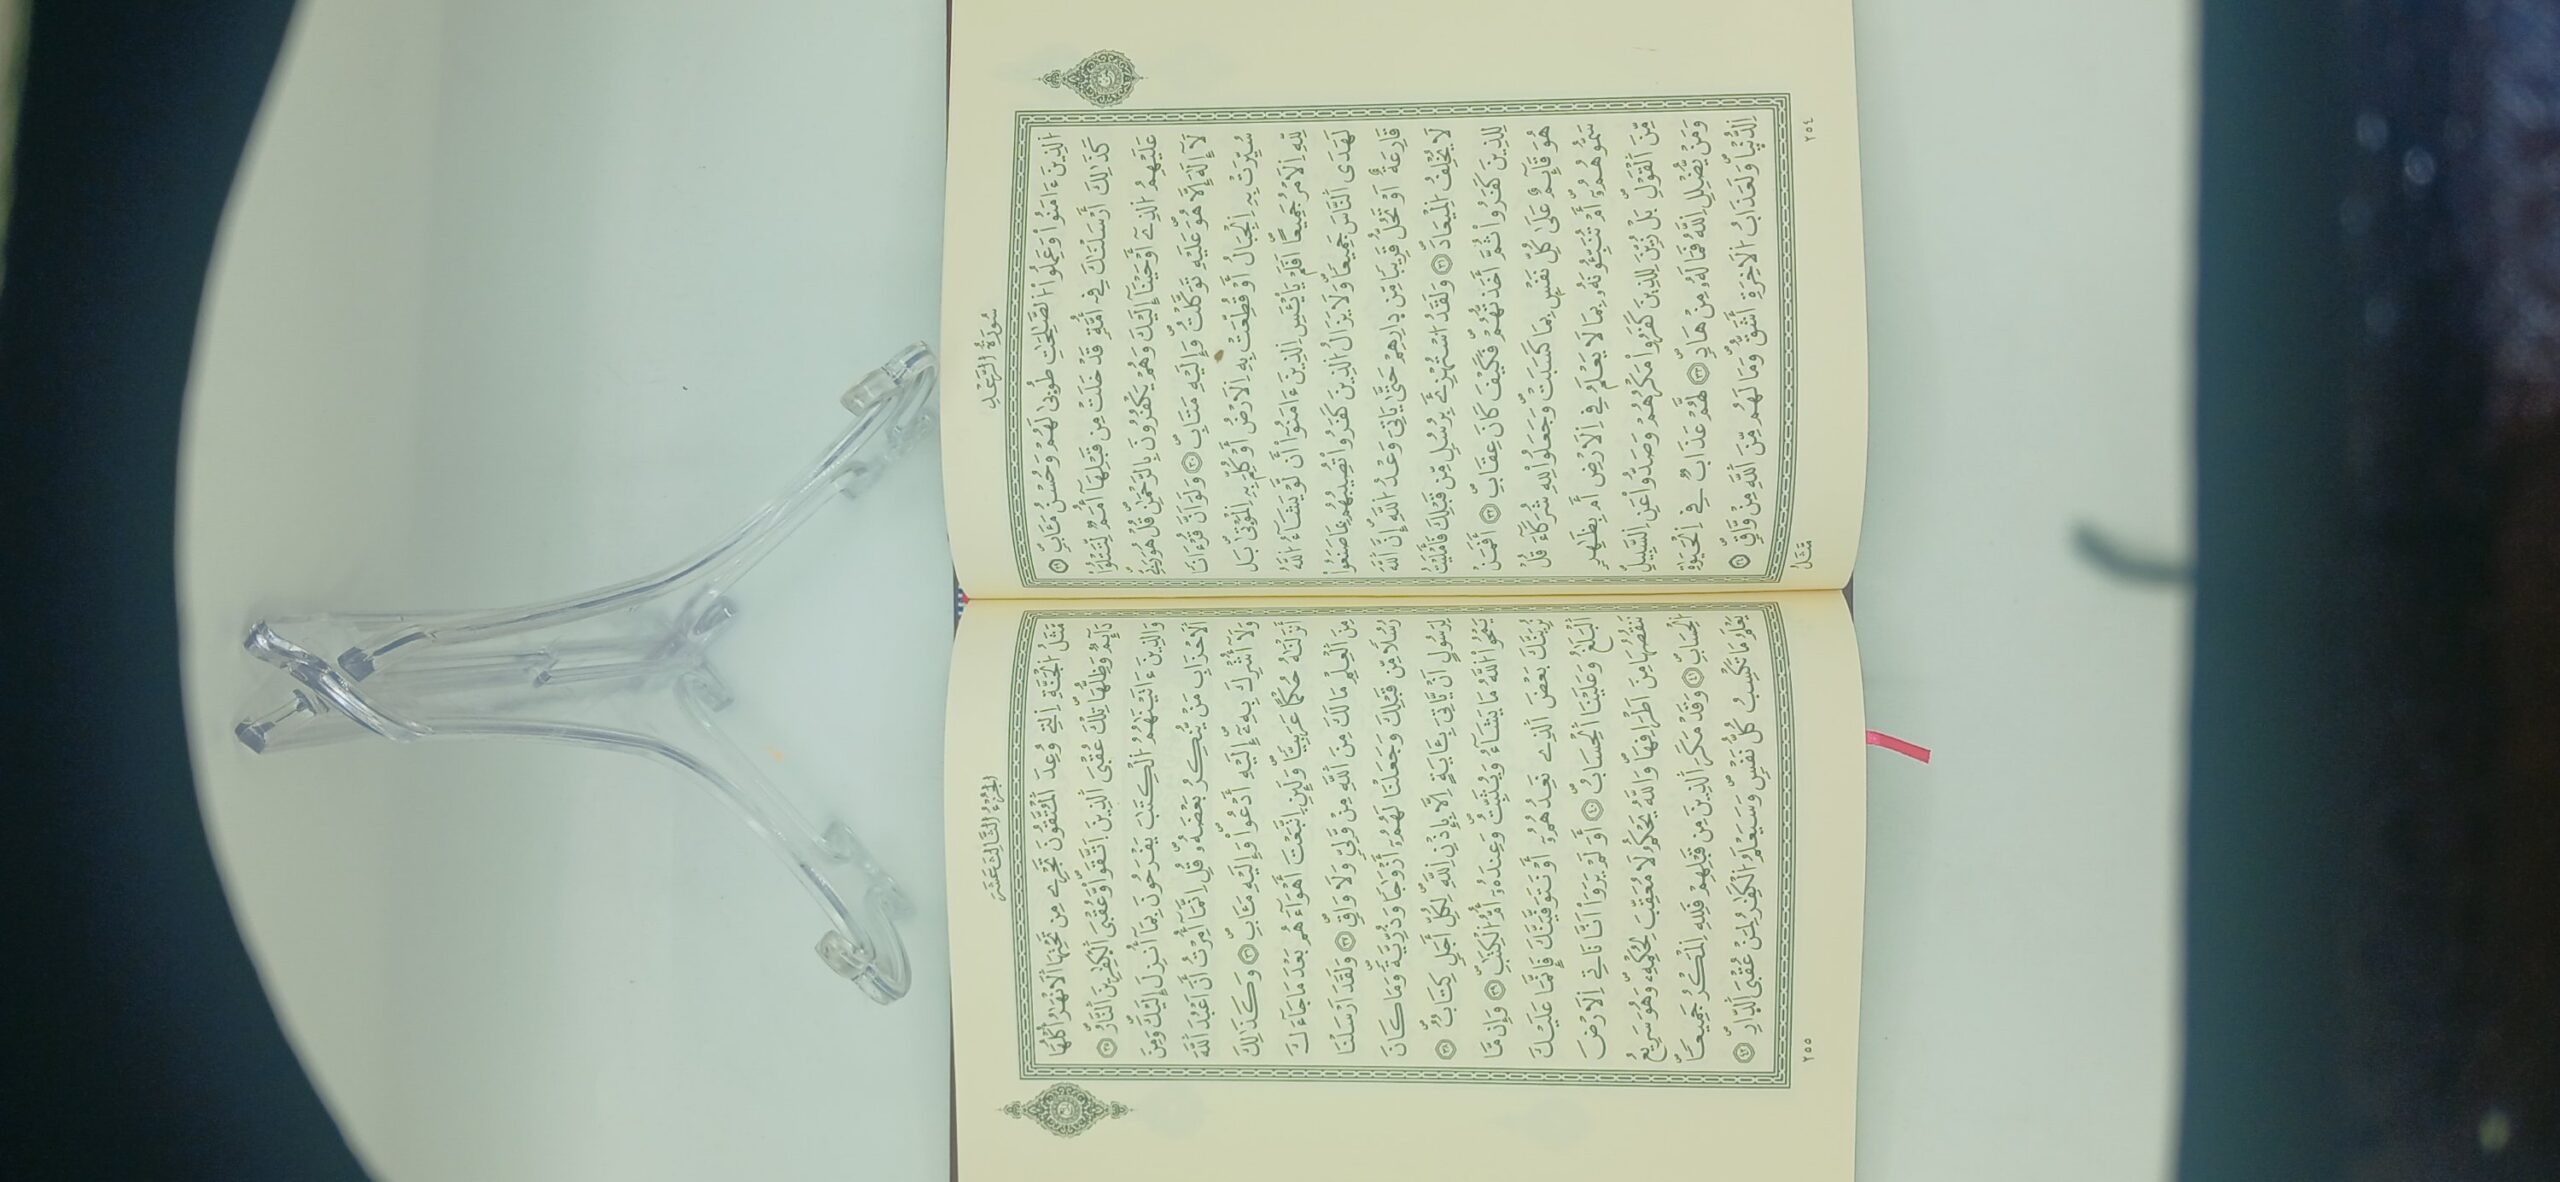 سُورَةُ الرَّعْدِ
الذِينَ ءَامَنُواْ وَعَمِلُواْ الصَّٰلِحَٰتِ طُوبىٰ لَهُمْ وَحُسْنُ مَـَٔابٖ ٢٩
كَذَٰلِكَ أَرْسَلْنَٰكَ فِےٓ أُمَّةٖ قَدْ خَلَتْ مِن قَبْلِهَآ أُمَمٞ لِّتَتْلُوَاْ
عَلَيْهِمُ الذِےٓ أَوْحَيْنَآ إِلَيْكَ وَهُمْ يَكْفُرُونَ بِالرَّحْمَٰنِۖ قُلْ هُوَ رَبِّے
لَآ إِلَٰهَ إِلَّا هُوَۖ عَلَيْهِ تَوَكَّلْتُ وَإِلَيْهِ مَتَابِۖ ٣٠ وَلَوَ اَنَّ قُرْءَاناٗ
سُيِّرَتْ بِهِ الْجِبَالُ أَوْ قُطِّعَتْ بِهِ الْأَرْضُ أَوْ كُلِّمَ بِهِ الْمَوْتىٰۖ بَل
لِّلهِ الْأَمْرُ جَمِيعاًۖ اَفَلَمْ يَاْيْـَٔسِ الذِينَ ءَامَنُوٓاْ أَن لَّوْ يَشَآءُ اللَّهُ
لَهَدَى النَّاسَ جَمِيعاٗۖ وَلَا يَزَالُ الذِينَ كَفَرُواْ تُصِيبُهُم بِمَا صَنَعُواْ
قَارِعَةٌ اَوْ تَحُلُّ قَرِيباٗ مِّن دِارِهِمْ حَتَّىٰ يَاتِيَ وَعْدُ اللَّهِۖ إِنَّ اللَّهَ
لَا يُخْلِفُ الْمِيعَادَۖ ٣١ وَلَقَدُ اسْتُهْزِئَ بِرُسُلٖ مِّن قَبْلِكَ فَأَمْلَيْتُ
لِلذِينَ كَفَرُواْ ثُمَّ أَخَذتُّهُمْۖ فَكَيْفَ كَانَ عِقَابِۖ ٣٢ أَفَمَنْ
هُوَ قَآئِمٌ عَلَىٰ كُلِّ نَفْسِۢ بِمَا كَسَبَتْۖ وَجَعَلُواْ لِلهِ شُرَكَآءَ قُلْ
سَمُّوهُمُۥٓۖ أَمْ تُنَبِّـُٔونَهُۥ بِمَا لَا يَعْلَمُ فِے الْأَرْضِ أَم بِظَٰهِرٖ
مِّنَ الْقَوْلِۖ بَلْ زُيِّنَ لِلذِينَ كَفَرُواْ مَكْرُهُمْ وَصَدُّواْ عَنِ السَّبِيلِۖ
وَمَنْ يُّضْلِلِ اللَّهُ فَمَا لَهُۥ مِنْ هَادٖۖ ٣٣ لَّهُمْ عَذَابٞ فِے الْحَيَوٰةِ
الدُّنْيٰاۖ وَلَعَذَابُ الْأَخِرَةِ أَشَقُّۖ وَمَا لَهُم مِّنَ اللَّهِ مِنْ وَّاقٖۖ ٣٤
مَّثَلُ
٢٥٤
الجُزْءُ الثَّالِثَ عَشَرَ
مَّثَلُ الْجَنَّةِ اِلتِے وُعِدَ الْمُتَّقُونَ تَجْرِے مِن تَحْتِهَا الْأَنْهَٰرُۖ أُكْلُهَا
دَآئِمٞ وَظِلُّهَاۖ تِلْكَ عُقْبَى الذِينَ اَتَّقَواْۖ وَّعُقْبَى الْكٰفِرِينَ النَّارُۖ ٣٥
وَالذِينَ ءَاتَيْنَٰهُمُ الْكِتَٰبَ يَفْرَحُونَ بِمَآ أُنزِلَ إِلَيْكَۖ وَمِنَ
الْأَحْزَابِ مَنْ يُّنكِرُ بَعْضَهُۥۖ قُلِ اِنَّمَآ أُمِرْتُ أَنَ اَعْبُدَ اللَّهَ
وَلَآ أُشْرِكَ بِهِۦٓۖ إِلَيْهِ أَدْعُواْ وَإِلَيْهِ مَـَٔابِۖ ٣٦ وَكَذَٰلِكَ
أَنزَلْنَٰهُ حُكْماً عَرَبِيّاٗۖ وَلَئِنِ اِتَّبَعْتَ أَهْوَآءَهُم بَعْدَ مَا جَآءَكَ
مِنَ الْعِلْمِ مَا لَكَ مِنَ اللَّهِ مِنْ وَّلِيّٖ وَلَا وَاقٖۖ ٣٧ وَلَقَدَ اَرْسَلْنَا
رُسُلاٗ مِّن قَبْلِكَ وَجَعَلْنَا لَهُمُۥٓ أَزْوَٰجاٗ وَذُرِّيَّةٗۖ وَمَا كَانَ
لِرَسُولٍ اَنْ يَّاتِيَ بِـَٔايَةٍ اِلَّا بِإِذْنِ اللَّهِۖ لِكُلِّ أَجَلٖ كِتَابٞۖ ٣٨
يَمْحُواْ اللَّهُ مَا يَشَآءُ وَيُثَبِّتُۖ وَعِندَهُۥٓ أُمُّ الْكِتَٰبِۖ ٣٩ وَإِن مَّا
نُرِيَنَّكَ بَعْضَ الذِے نَعِدُهُمُۥٓ أَوْ نَتَوَفَّيَنَّكَ فَإِنَّمَا عَلَيْكَ
الْبَلَٰغُ وَعَلَيْنَا الْحِسَابُۖ ٤٠ أَوَلَمْ يَرَوَاْ اَنَّا نَاتِے الْأَرْضَ
نَنقُصُهَا مِنَ اَطْرَافِهَاۖ وَاللَّهُ يَحْكُمُ لَا مُعَقِّبَ لِحُكْمِهِۦۖ وَهُوَ سَرِيعُ
الْحِسَابِۖ ٤١ وَقَدْ مَكَرَ الذِينَ مِن قَبْلِهِمْ فَلِلهِ الْمَكْرُ جَمِيعاٗۖ
يَعْلَمُ مَا تَكْسِبُ كُلُّ نَفْسٖۖ وَسَيَعْلَمُ الْكَٰفِرُ لِمَنْ عُقْبَى الدِّارِۖ ٤٢
٢٥٥